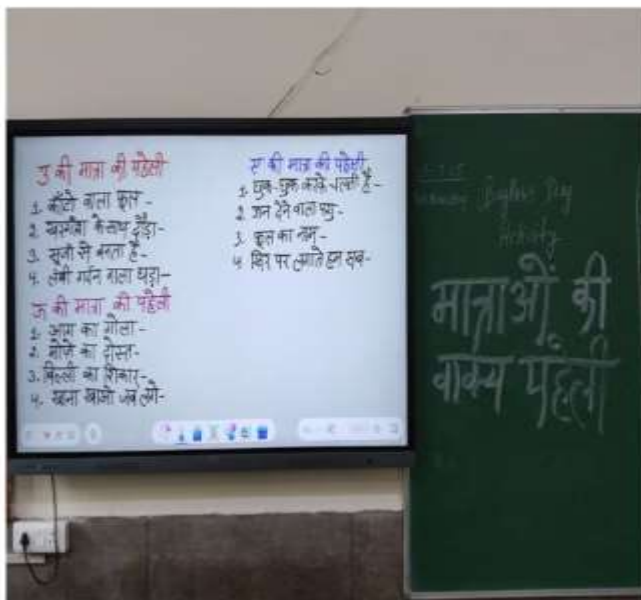 उ की मात्रा की पहेली
1. काँटो वाला फूल -
2. खरगोश के साथ दौड़ा-
3. सूजी से बनता है-
4. लंबी गर्दन वाला घड़ा-
ऊ की मात्रा की पहेली
1. आग का गोला -
2. मोजे का दोस्त-
3. बिल्ली का शिकार-
4. खाना खाओ जब लगे-
ए की मात्रा की पहेली
1. छुक-छुक करके चलती है-
2. ऊन देने वाला पशु-
3. फल का नाम-
4. सिर पर लगाते हम सब-
Bagless Day
Activity
मात्राओं की
वाक्य पहेली